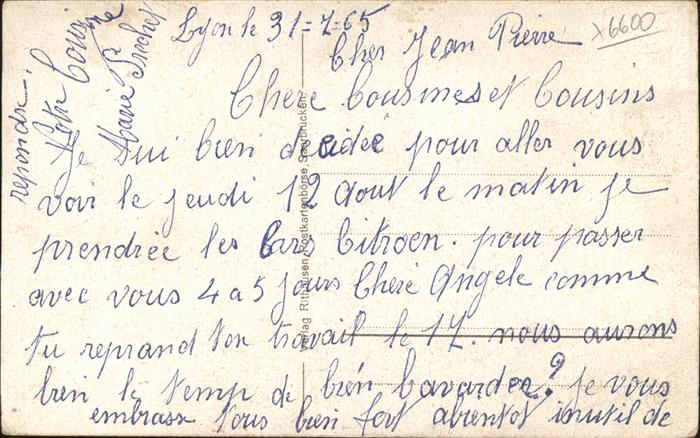 Lyon le 31=7=65
x6600
Cher Jean Pierre
Chere Cousines et Cousins
Je sui bien décidée pour aller vous
voir le jeudi 12 aout le matin je
prendrée les Cars Citroen. pour passer
avec vous 4 a 5 jours Chere Angele comme
tu reprand ton travail le 17. nous aurons
bien le temp de bien bavarder? Je vous
embrasse tous bien fort abientot inutil de
repondre.
Votre Cousine
Marie
Verlag Rithausen, Postkartenbörse Saarbrücken.